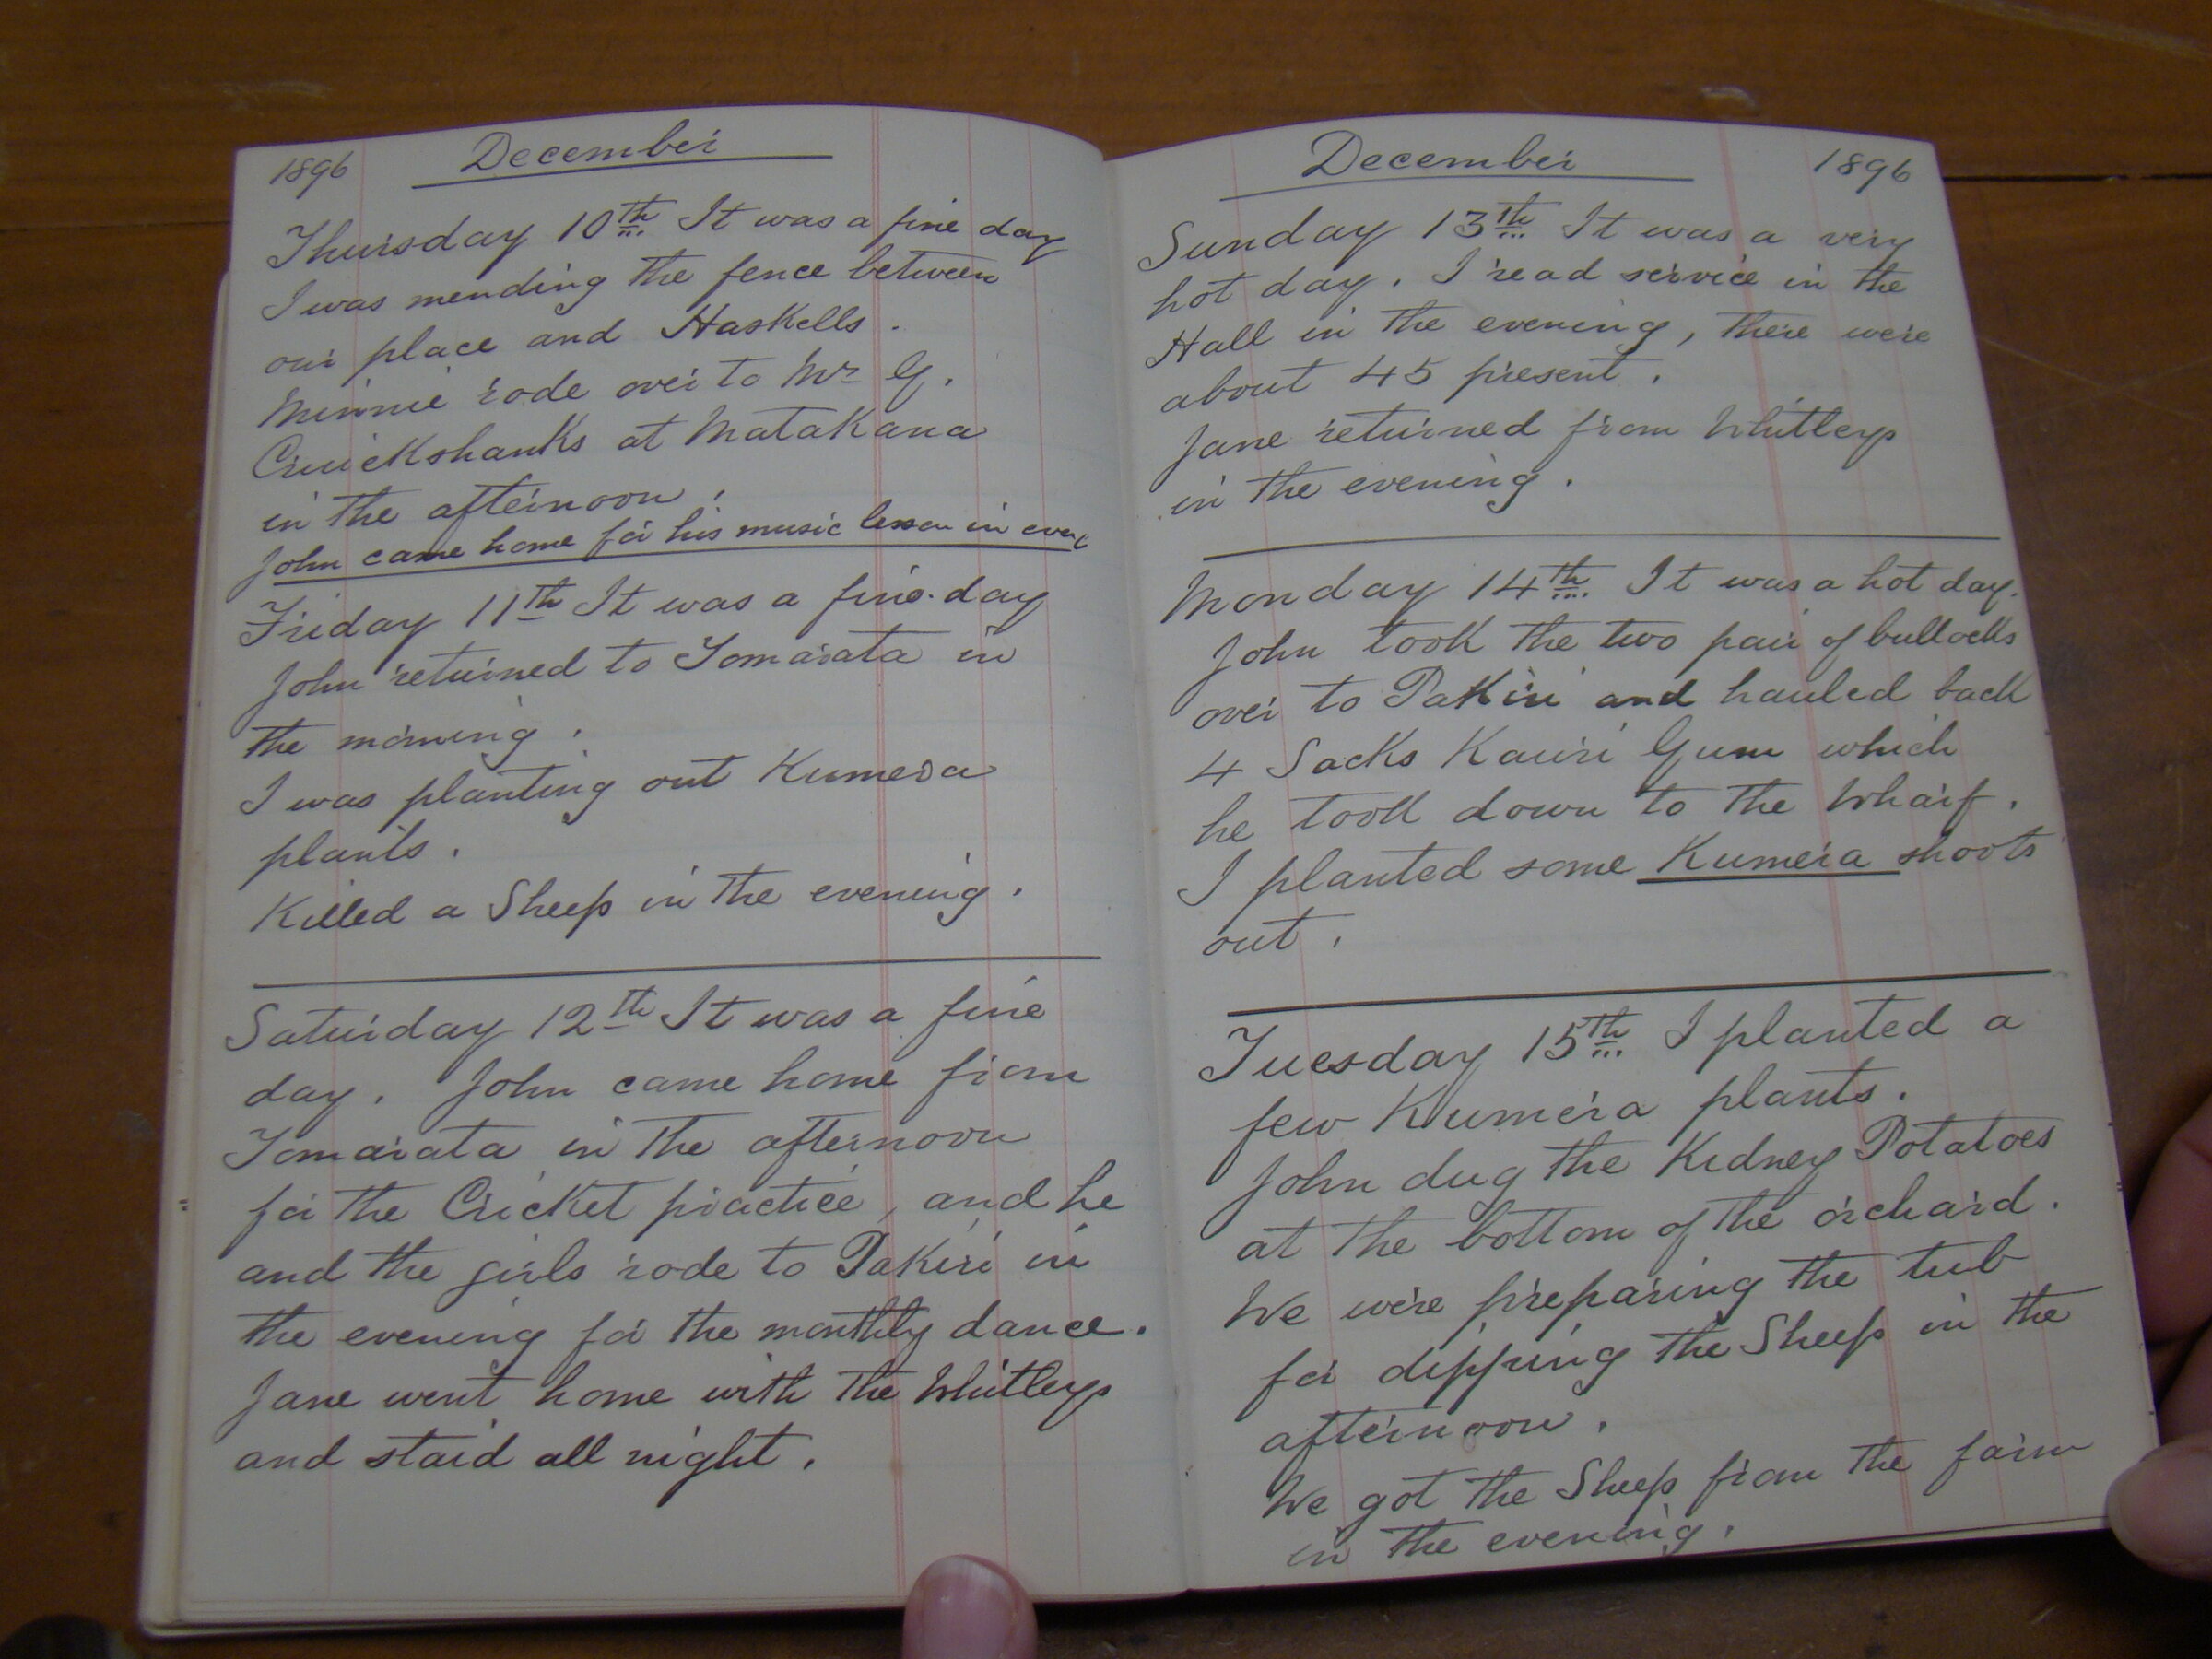 1896 December
Thursday 10th It was a fine day
I was mending the fence between
our place and Haskells.
Minnie rode over to Mr G.
Cruickshanks at Matakana
in the afternoon.
John came home for his music lesson in eveg
Friday 11th It was a fine day
John returned to Tomarata in
the morning.
I was planting out Kumera
plants.
Killed a Sheep in the evening.
Saturday 12th It was a fine
day. John came home from
Tomarata in the afternoon
for the Cricket practice, and he
and the girls rode to Pakiri in
the evening for the monthly dance.
Jane went home with the Whitleys
and staid all night.
December 1896
Sunday 13th It was a very
hot day. I read service in the
Hall in the evening, there were
about 45 present.
Jane returned from Whitleys
in the evening.
Monday 14th It was a hot day.
John took the two pair of bullocks
over to Pakiri and hauled back
4 Sacks Kauri Gum which
he took down to the Wharf.
I planted some Kumera shoots
out.
Tuesday 15th I planted a
few Kumera plants.
John dug the Kidney Potatoes
at the bottom of the orchard.
We were preparing the tub
for dipping the Sheep in the
afternoon.
We got the Sheep from the farm
in the evening.